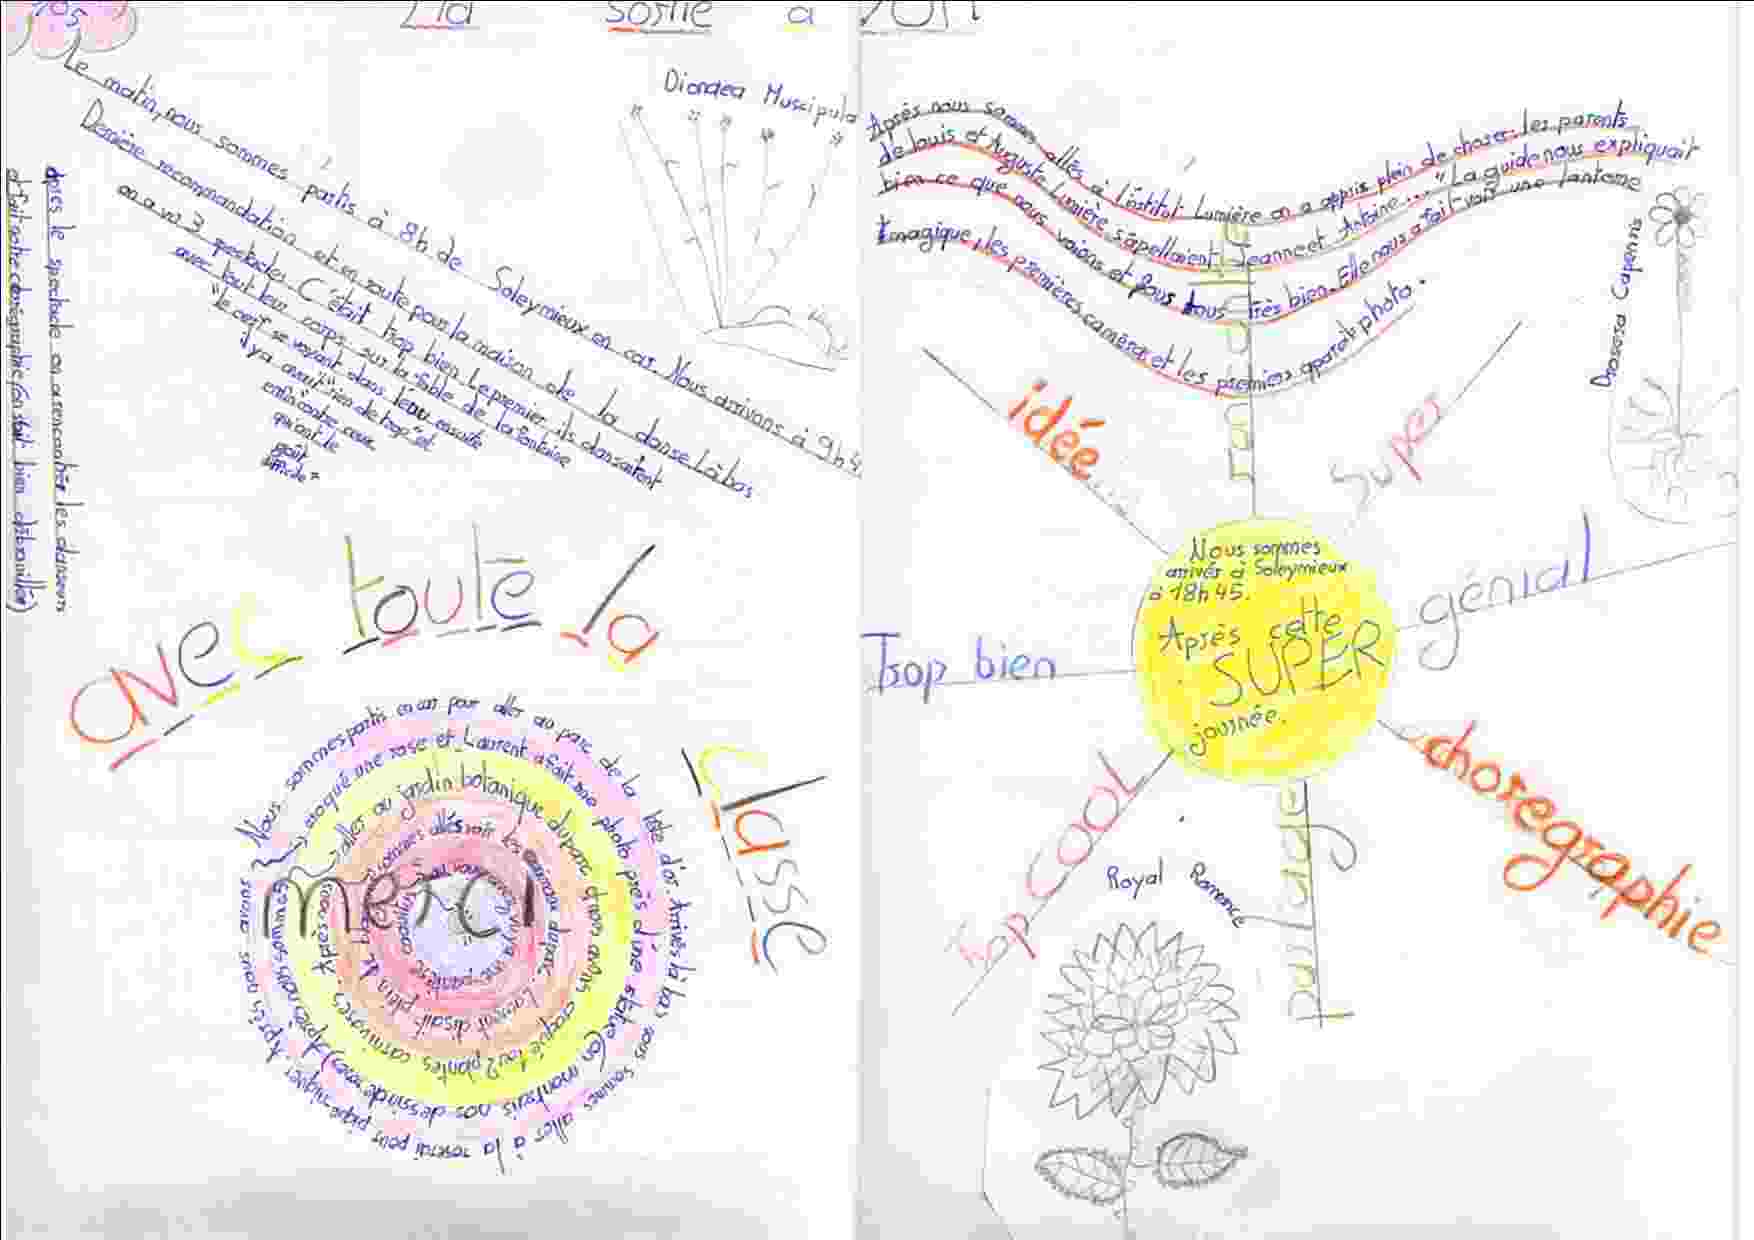 105
La sortie à
Dionaea Muscipula
Le matin, nous sommes partis à 8h de Soleymieux en car. Nous arrivons à 9h4
Dernière recommandation et en route pour la maison de la danse. Là bas
on a vu 3 spectacles. C'était trop bien. Le premier, ils dansaient
avec tout leur corps sur la fable de la fontaine
"Le cerf se voyant dans l'eau" ensuite
il y avait "rien de trop" et
enfin contre ceux
qui ont le
goût
difficile"
après le spectacle on a rencontrer les danseurs
et fait notre corégraphie (on s'était bien débrouiller)
avec toute la
classe
merci
Nous sommes partis en car pour aller au parc de la tête d'or. Arrivés là bas nous sommes aller à la roserai pour pique niquer. Après nous
croqué une rose et Laurent a fait une photo près d'une statue (on montrais nos dessin de roses) Après nous sommes
aller au jardin botanique du parc et nous avons croqué 1 ou 2 plantes carnivores. Après nous
sommes allés voir les animaux du parc. Laurent disait plein de
LYON
Après nous sommes allés à l'institut Lumière on a appris plein de choses: les parents
de Louis et Auguste Lumière s'apellaient Jeanne et Antoine... "La guide nous expliquait
bien ce que nous voions et nous tous très bien. Elle nous a fait voir une lanterne
magique, les premières caméras et les premiers appareils photo.
Drosera Capensis
idée...
Super
génial
Trop bien
Nous sommes
arrivés à Soleymieux
à 18h45.
Après cette
SUPER
journée.
chorégraphie
Trop COOL
partage
Royal Romance